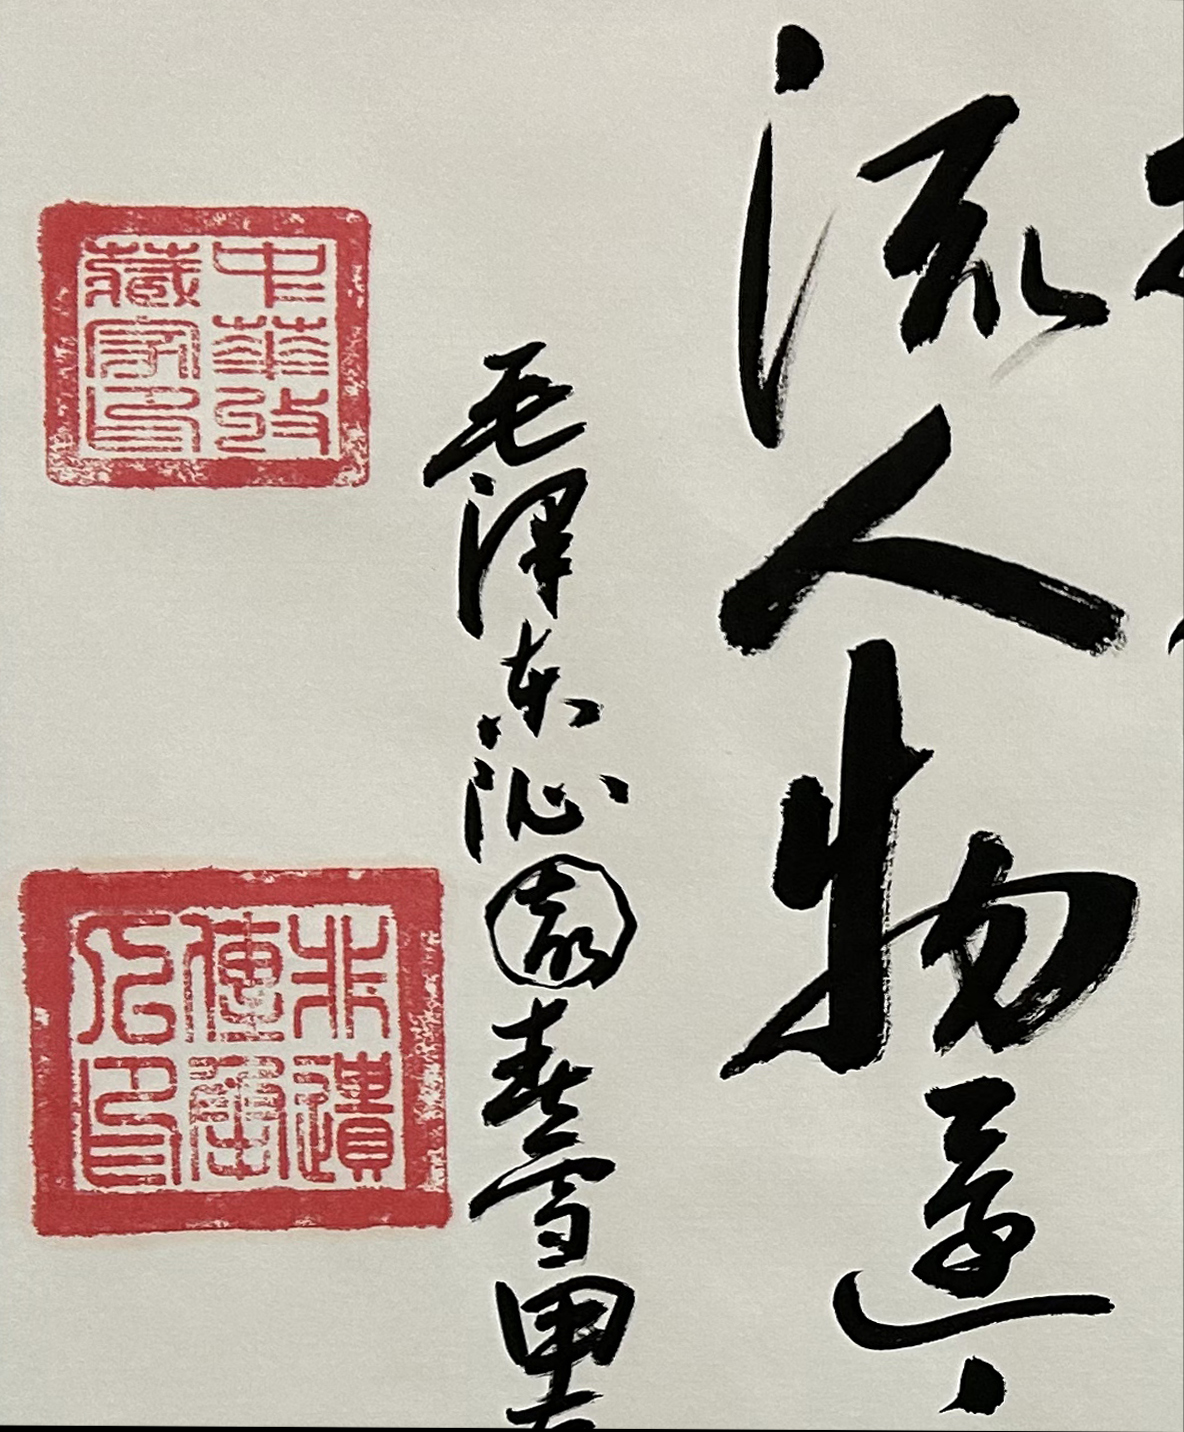 流人物還
毛澤东沁園春雪甲
中華收
藏家印
非遺
傳
印